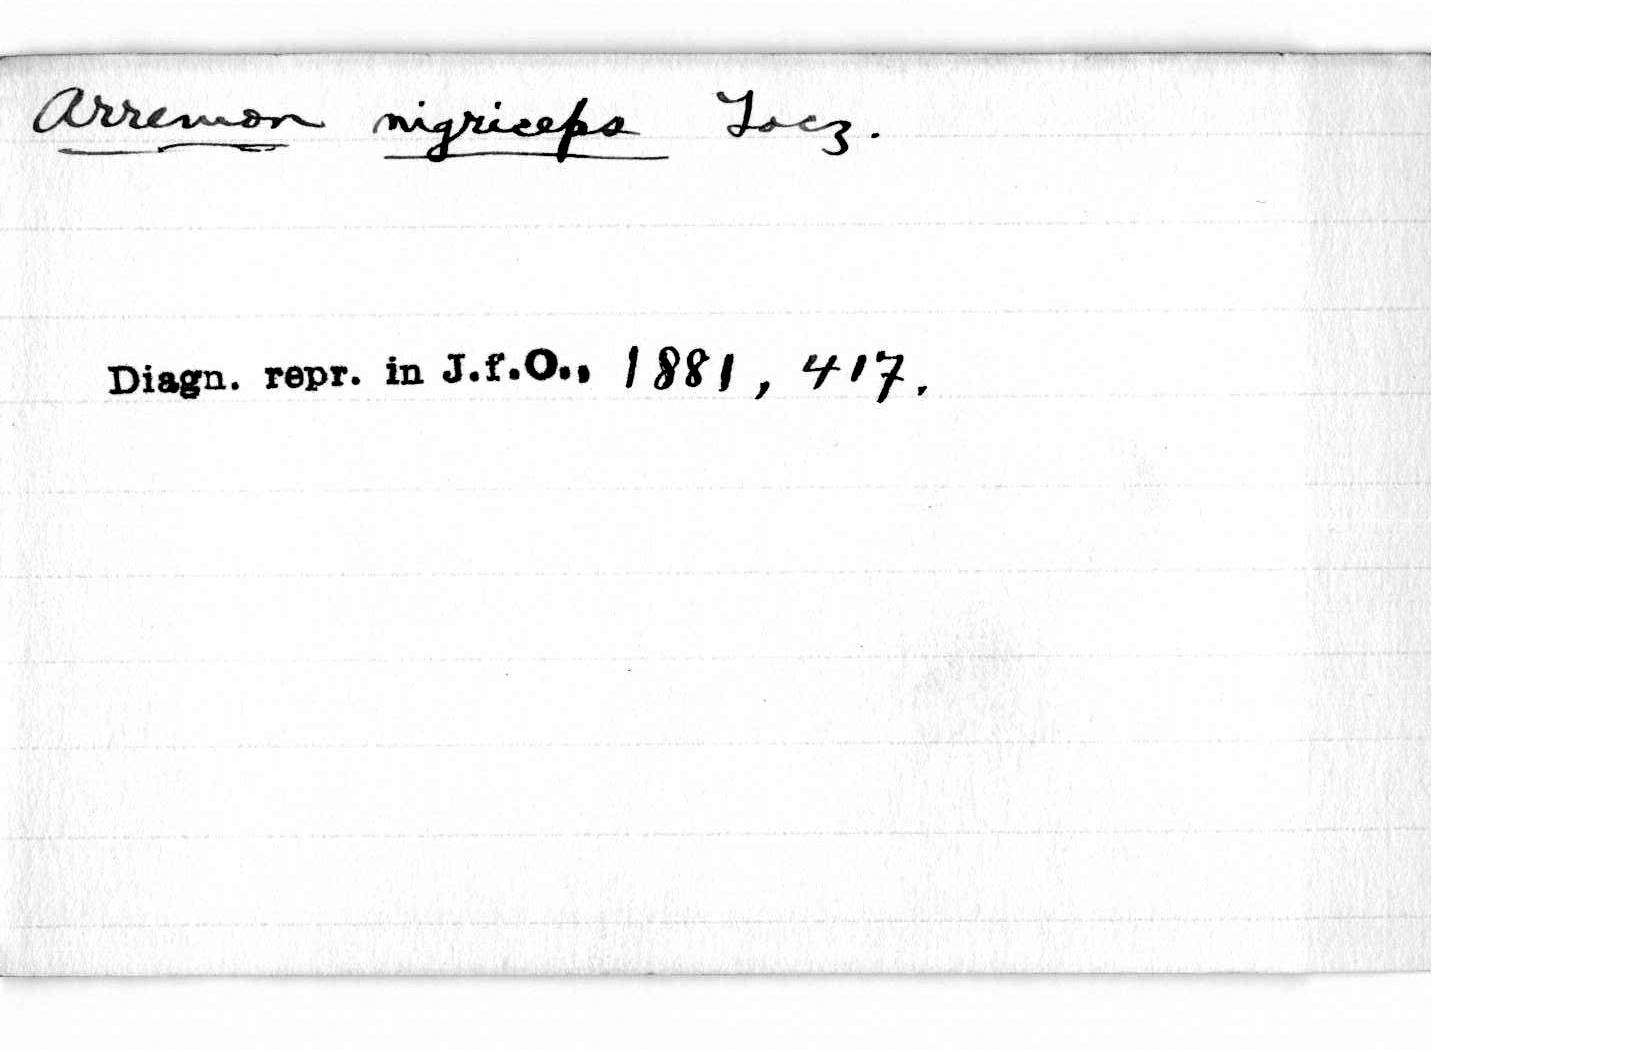 Arremon nigriceps Tacz.
Diagn. repr. in J.f.O., 1881, 417.